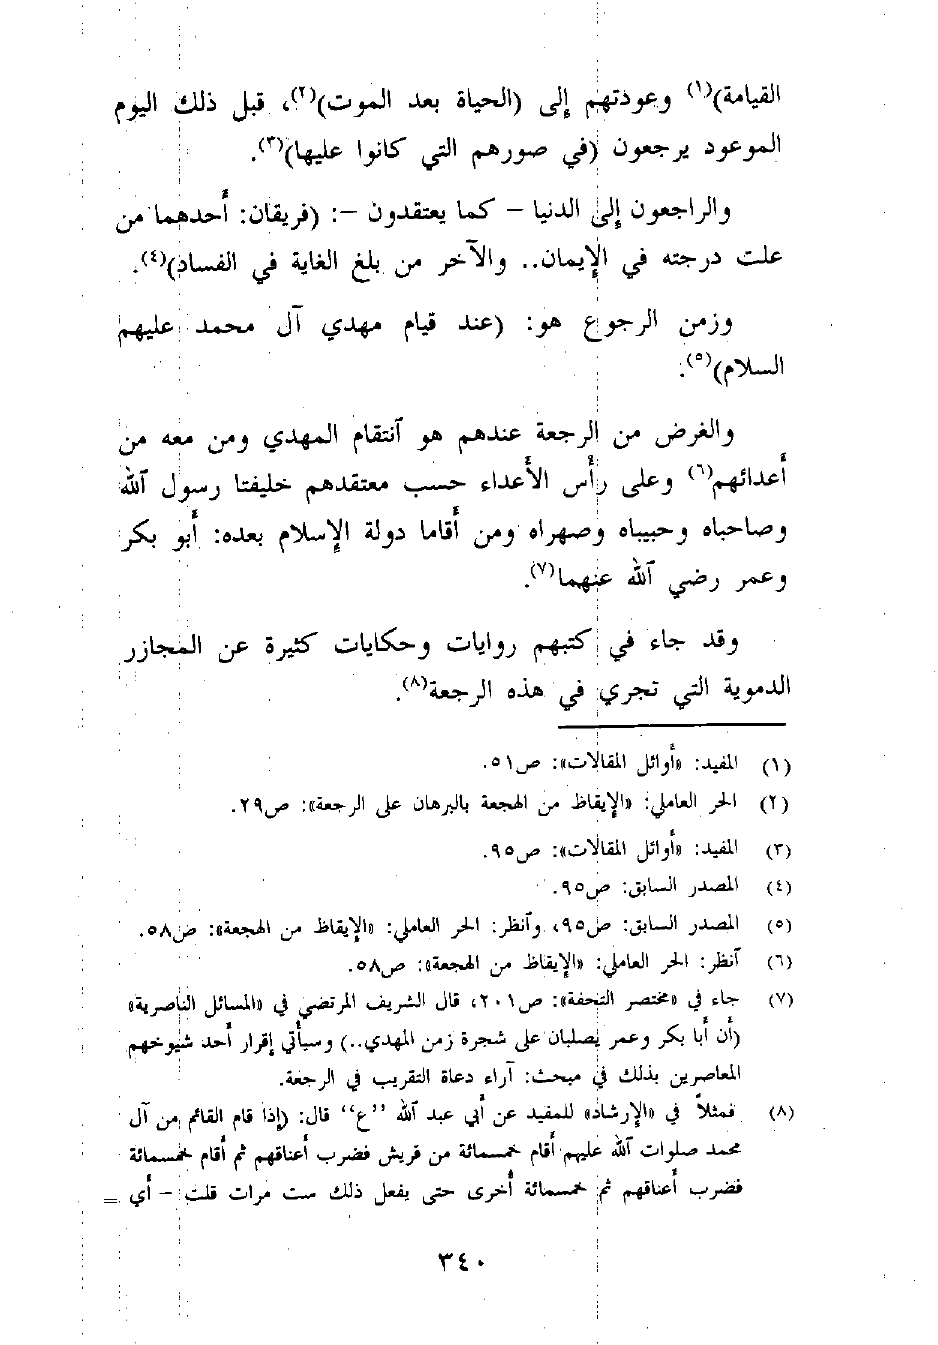 القيامة)(١) وعودتهم إلى (الحياة بعد الموت)(٢)، قبل ذلك اليوم
الموعود يرجعون (في صورهم التي كانوا عليها)(٣).
والراجعون إلى الدنيا - كما يعتقدون -: (فريقان: أحدهما من
علت درجته في الإيمان.. والآخر من بلغ الغاية في الفساد)(٤).
وزمن الرجوع هو: (عند قيام مهدي آل محمد عليهم
السلام)(٥).
والغرض من الرجعة عندهم هو ٱنتقام المهدي ومن معه من
أعدائهم(٦) وعلى رأس الأعداء حسب معتقدهم خليفتا رسول ٱلله
وصاحباه وحبيباه وصهراه ومن أقاما دولة الإسلام بعده: أبو بكر
وعمر رضي ٱلله عنهما(٧).
وقد جاء في كتبهم روايات وحكايات كثيرة عن المجازر
الدموية التي تجري في هذه الرجعة(٨).
(١) المفيد: «أوائل المقالات»: ص٥١.
(٢) الحر العاملي: «الإيقاظ من الهجعة بالبرهان على الرجعة»: ص٢٩.
(٣) المفيد: «أوائل المقالات»: ص٩٥.
(٤) المصدر السابق: ص٩٥.
(٥) المصدر السابق: ص٩٥، وٱنظر: الحر العاملي: «الإيقاظ من الهجعة»: ص٥٨.
(٦) ٱنظر: الحر العاملي: «الإيقاظ من الهجعة»: ص٥٨.
(٧) جاء في «مختصر التحفة»: ص٢٠١، قال الشريف المرتضي في «المسائل الناصرية»
(أن أبا بكر وعمر يصلبان على شجرة زمن المهدي..) وسيأتي إقرار أحد شيوخهم
المعاصرين بذلك في مبحث: آراء دعاة التقريب في الرجعة.
(٨) فمثلاً في «الإرشاد» للمفيد عن أبي عبد ٱلله "ع" قال: (إذا قام القائم من آل
محمد صلوات ٱلله عليهم أقام خمسمائة من قريش فضرب أعناقهم ثم أقام خمسمائة
فضرب أعناقهم ثم خمسمائة أخرى حتى يفعل ذلك ست مرات قلت - أي =
٣٤٠